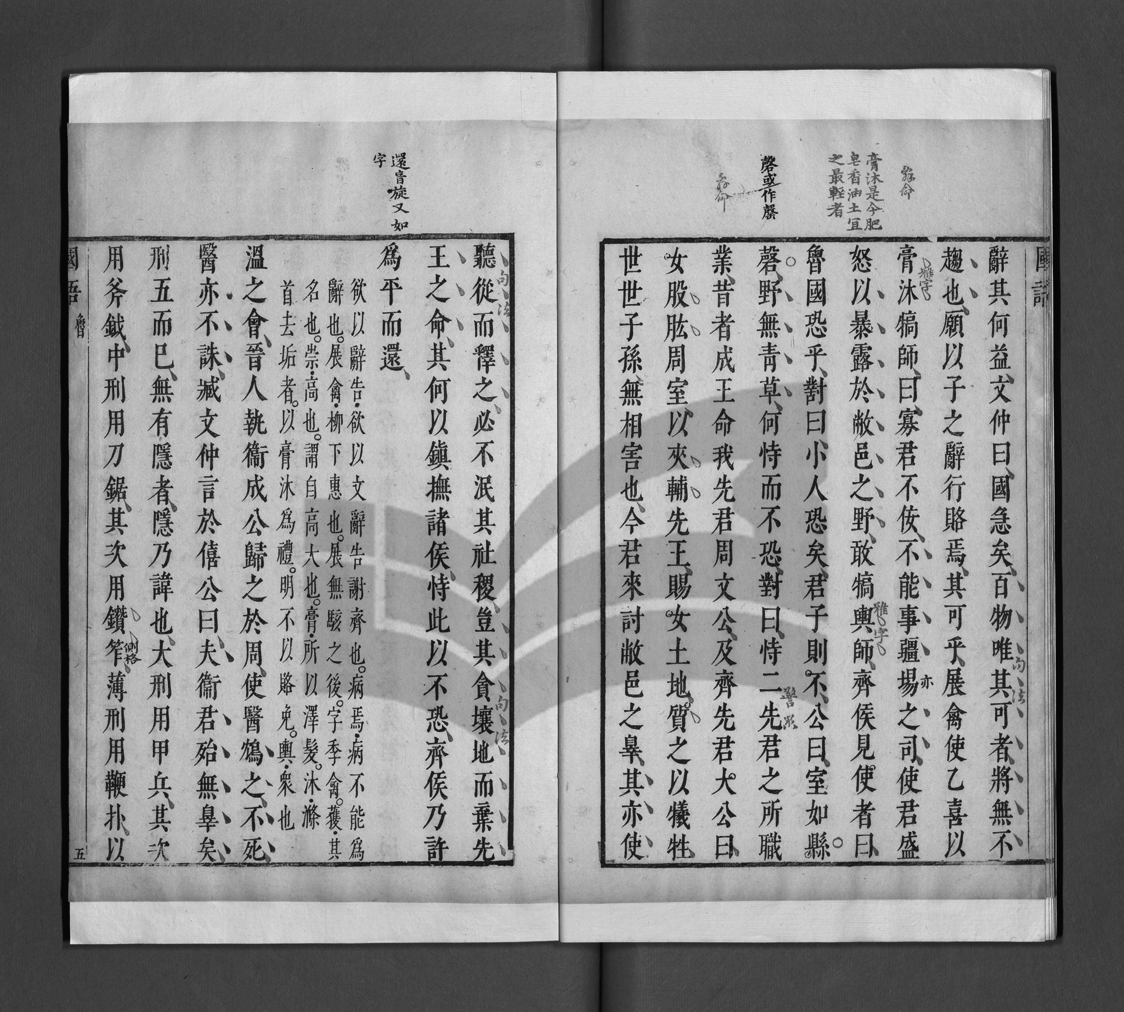 國語
辭其何益文仲曰國急矣百物唯其可者將無不
趨也願以子之辭行賂焉其可乎展禽使乙喜以
膏沐犒師曰寡君不佞不能事疆埸之司使君盛
怒以暴露於敝邑之野敢犒輿師齊侯見使者曰
魯國恐乎對曰小人恐矣君子則不公曰室如縣
磬野無青草何恃而不恐對曰恃二先君之所職
業昔者成王命我先君周文公及齊先君大公曰
女股肱周室以夾輔先王賜女土地質之以犧牲
世世子孫無相害也今君來討敝邑之辠其亦使
膏沐是今肥
皂香油土宜
之最輕者
磬或作罄
辭命
辭命
雅字
雅字
句法
亦
聽從而釋之必不泯其社稷豈其貪壤地而棄先
王之命其何以鎮撫諸侯恃此以不恐齊侯乃許
爲平而還
欲以辭告欲以文辭告謝齊也病焉病不能爲
辭也展禽柳下惠也展無駭之後字季禽獲其
名也崇高也謂自高大也膏所以澤髮沐滌
首去垢者以膏沐爲禮明不以賂免輿衆也
溫之會晉人執衞成公歸之於周使醫鴆之不死
醫亦不誅臧文仲言於僖公曰夫衞君殆無辠矣
刑五而已無有隱者隱乃諱也大刑用甲兵其次
用斧鉞中刑用刀鋸其次用鑽笮薄刑用鞭扑以
還音旋又如
字
句法
句法
側格
國語
魯
五